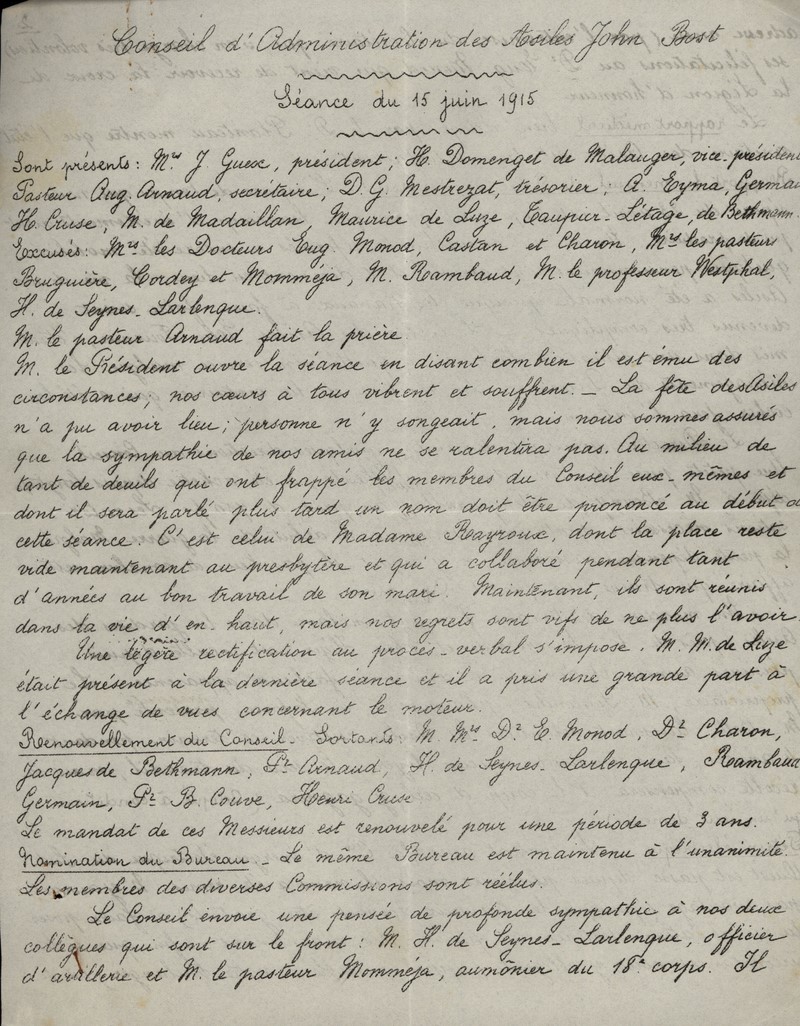 Conseil d'Administration des Asiles John Bost
Séance du 15 juin 1915
Sont présents : Mrs J. Guex, président ; H. Domenget de Malauger, vice-président
Pasteur Aug. Arnaud, secrétaire ; D. G. Mestrezat, trésorier ; A. Eyma, Germain
H. Cruse, M. de Madaillan, Maurice de Luze, Taupier-Létage, de Bethmann.
Excusés : Mrs les Docteurs Eug. Monod, Castan et Charon, Mrs les pasteurs
Bruguière, Cordey et Momméja, M. Rambaud, M. le professeur Westphal,
H. de Seynes-Larlenque.
M. le pasteur Arnaud fait la prière
M. le Président ouvre la séance en disant combien il est ému des
circonstances ; nos cœurs à tous vibrent et souffrent. — La fête des Asiles
n'a pu avoir lieu ; personne n'y songeait, mais nous sommes assurés
que la sympathie de nos amis ne se ralentira pas. Au milieu de
tant de deuils qui ont frappé les membres du Conseil eux-mêmes et
dont il sera parlé plus tard un nom doit être prononcé au début d
cette séance. C'est celui de Madame Rayroux, dont la place reste
vide maintenant au presbytère et qui a collaboré pendant tant
d'années au bon travail de son mari. Maintenant, ils sont réunis
dans la vie d'en-haut, mais nos regrets sont vifs de ne plus l'avoir.
Une légère rectification au procès-verbal s'impose. M. M. de Luze
était présent à la dernière séance et il a pris une grande part à
l'échange de vues concernant le moteur.
Renouvellement du Conseil - Sortants : M. Mrs Dr E. Monod, Dr Charon,
Jacques de Bethmann, Pr Arnaud, H. de Seynes-Larlenque, Rambaud
Germain, Pr B. Couve, Henri Cruse
Le mandat de ces Messieurs est renouvelé pour une période de 3 ans.
Nomination du Bureau - Le même Bureau est maintenu à l'unanimité.
Les membres des diverses Commissions sont réélus.
Le Conseil envoie une pensée de profonde sympathie à nos deux
collègues qui sont sur le front : M. H. de Seynes-Larlenque, officier
d'artillerie et M. le pasteur Momméja, aumônier du 18e corps. Il